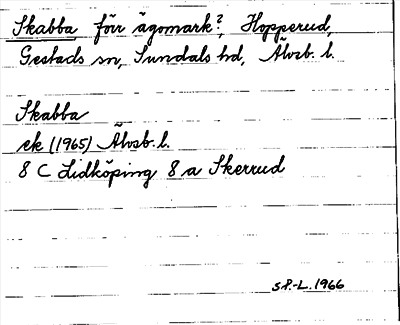 Skabba förr ägomark?, Hopperud,
Gestads sn, Sundals hd, Älvsb. l.
Skabba
ek (1965) Älvsb. l.
8 C Lidköping 8 a Skerrud
SP.-L. 1966